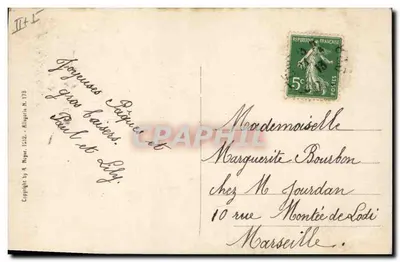 II + I
Joyeuses Pâques et
gros baisers.
Paul et Lily.
REPUBLIQUE FRANÇAISE
5c
POSTES
Mademoiselle
Marguerite Bourbon
chez M Jourdan
10 rue Montée de Lodi
Marseille.
CPAPHIL